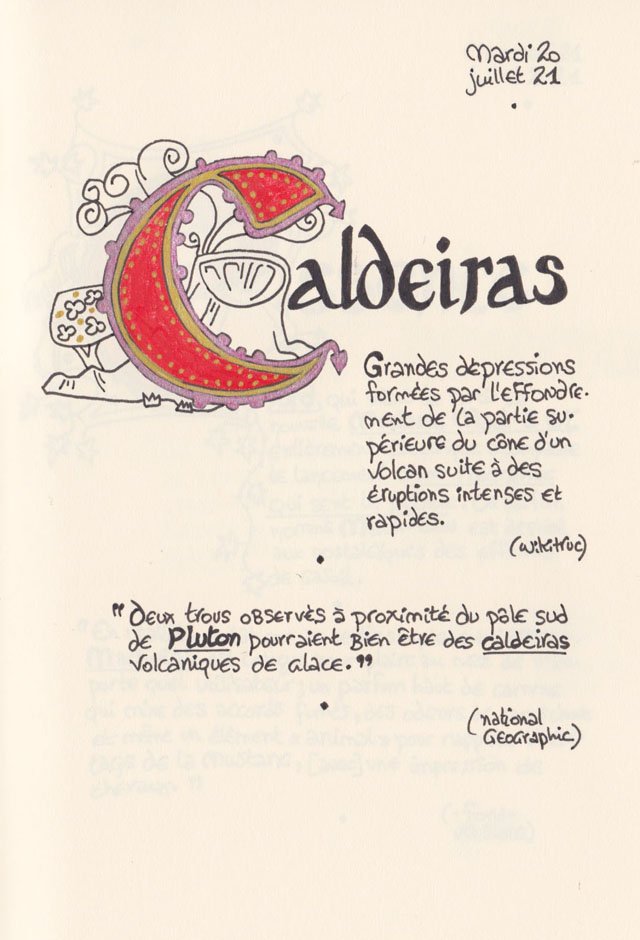 Mardi 20
juillet 21
Caldeiras
Grandes dépressions
formées par l'effondre-
ment de la partie su-
périeure du cône d'un
volcan suite à des
éruptions intenses et
rapides.
(wikitruc)
"Deux trous observés à proximité du pôle sud
de Pluton pourraient bien être des caldeiras
volcaniques de glace."
(national
Geographic)